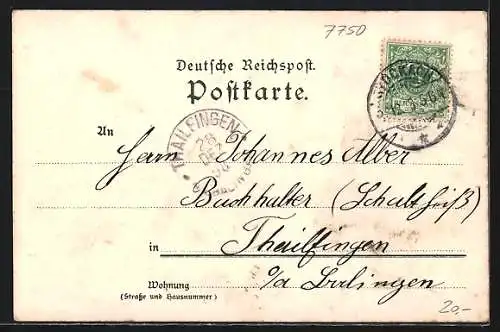 7750
Deutsche Reichspost.
Postkarte.
STOCKACH
An
THAILFINGEN
28
DEZ
Herrn Johannes Alber
Buchhalter (Schultheiß)
in Thailfingen
Wohnung o/a Balingen
(Straße und Hausnummer)
20.-